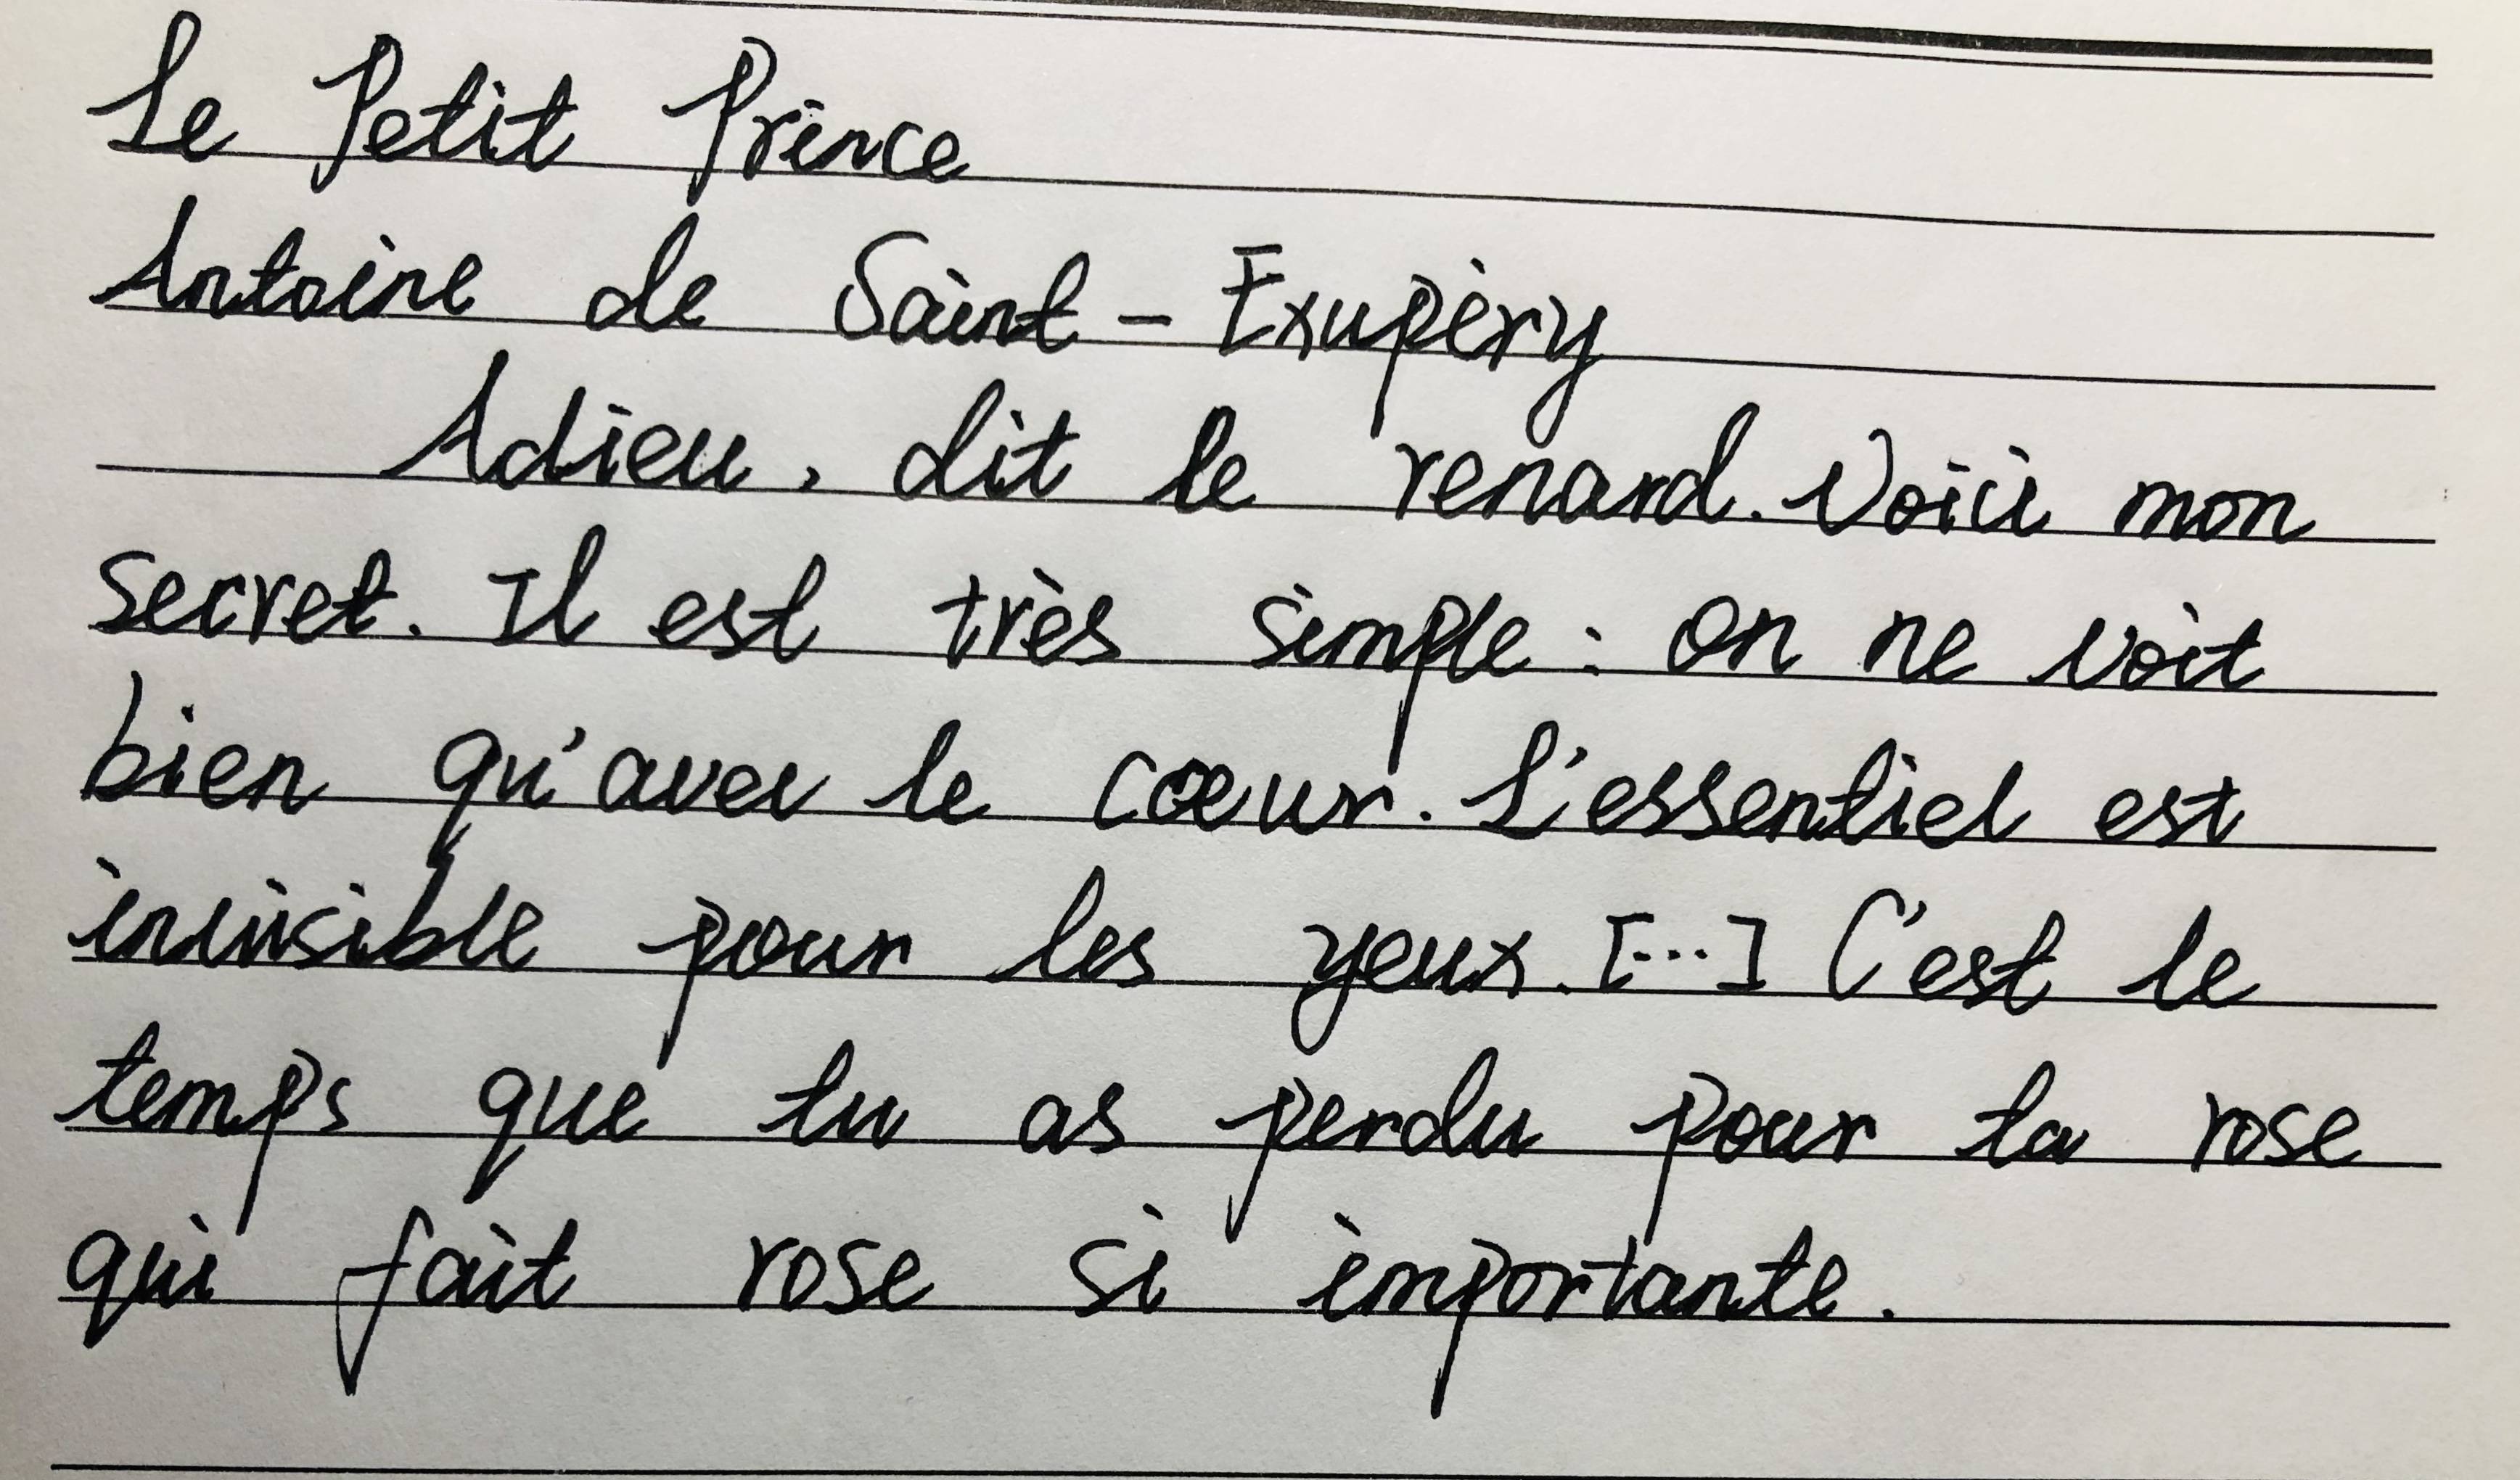 Le Petit Prince
Antoine de Saint-Exupéry
Adieu, dit le renard. Voici mon
secret. Il est très simple : on ne voit
bien qu'avec le cœur. L'essentiel est
invisible pour les yeux. [...] C'est le
temps que tu as perdu pour ta rose
qui fait rose si importante.